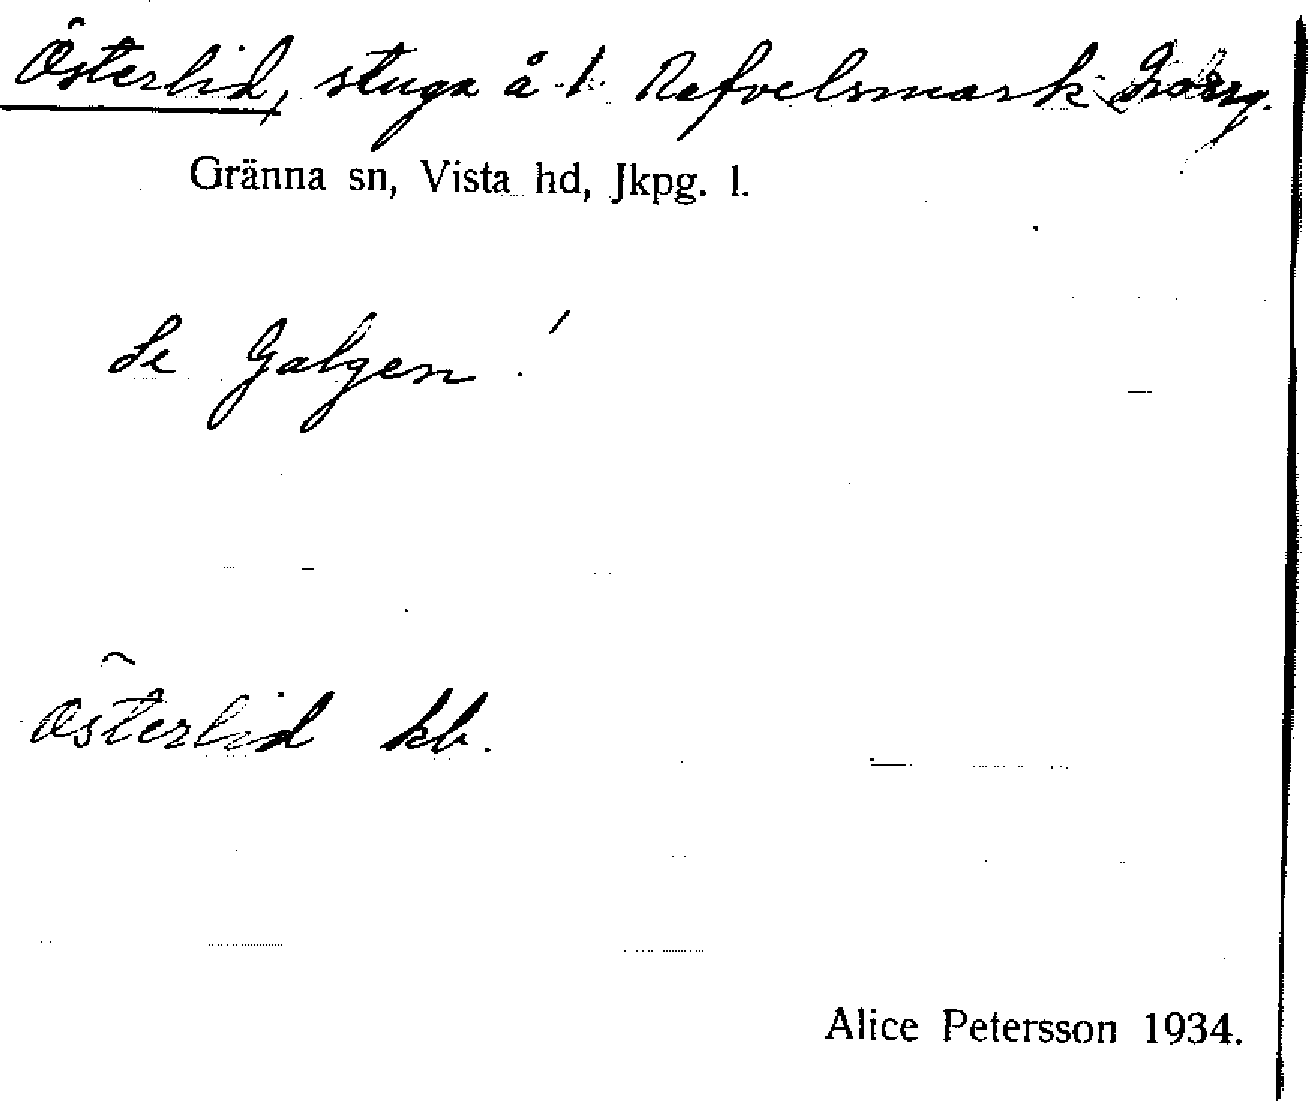 Österlid, stuga å 1 Refvelsmark
Gränna sn, Vista hd, Jkpg. l.
Se Galgen!
Österlid kb.
Alice Petersson 1934.